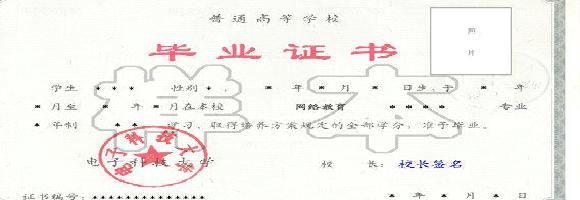 普通高等学校
毕业证书
照
片
学生 * * * 性别 * ， * 年 * 月 * 日生，于 * 年
* 月至 * 年 * 月在本校 网络教育 * * * * 专业
* 年制 * * 学习、取得培养方案规定的全部学分，准予毕业。
样本
电子科技大学
电子科技大学 校 长： 校长签名
证书编号：* * * * * * * * * * * * * * * 年 * 月 * 日